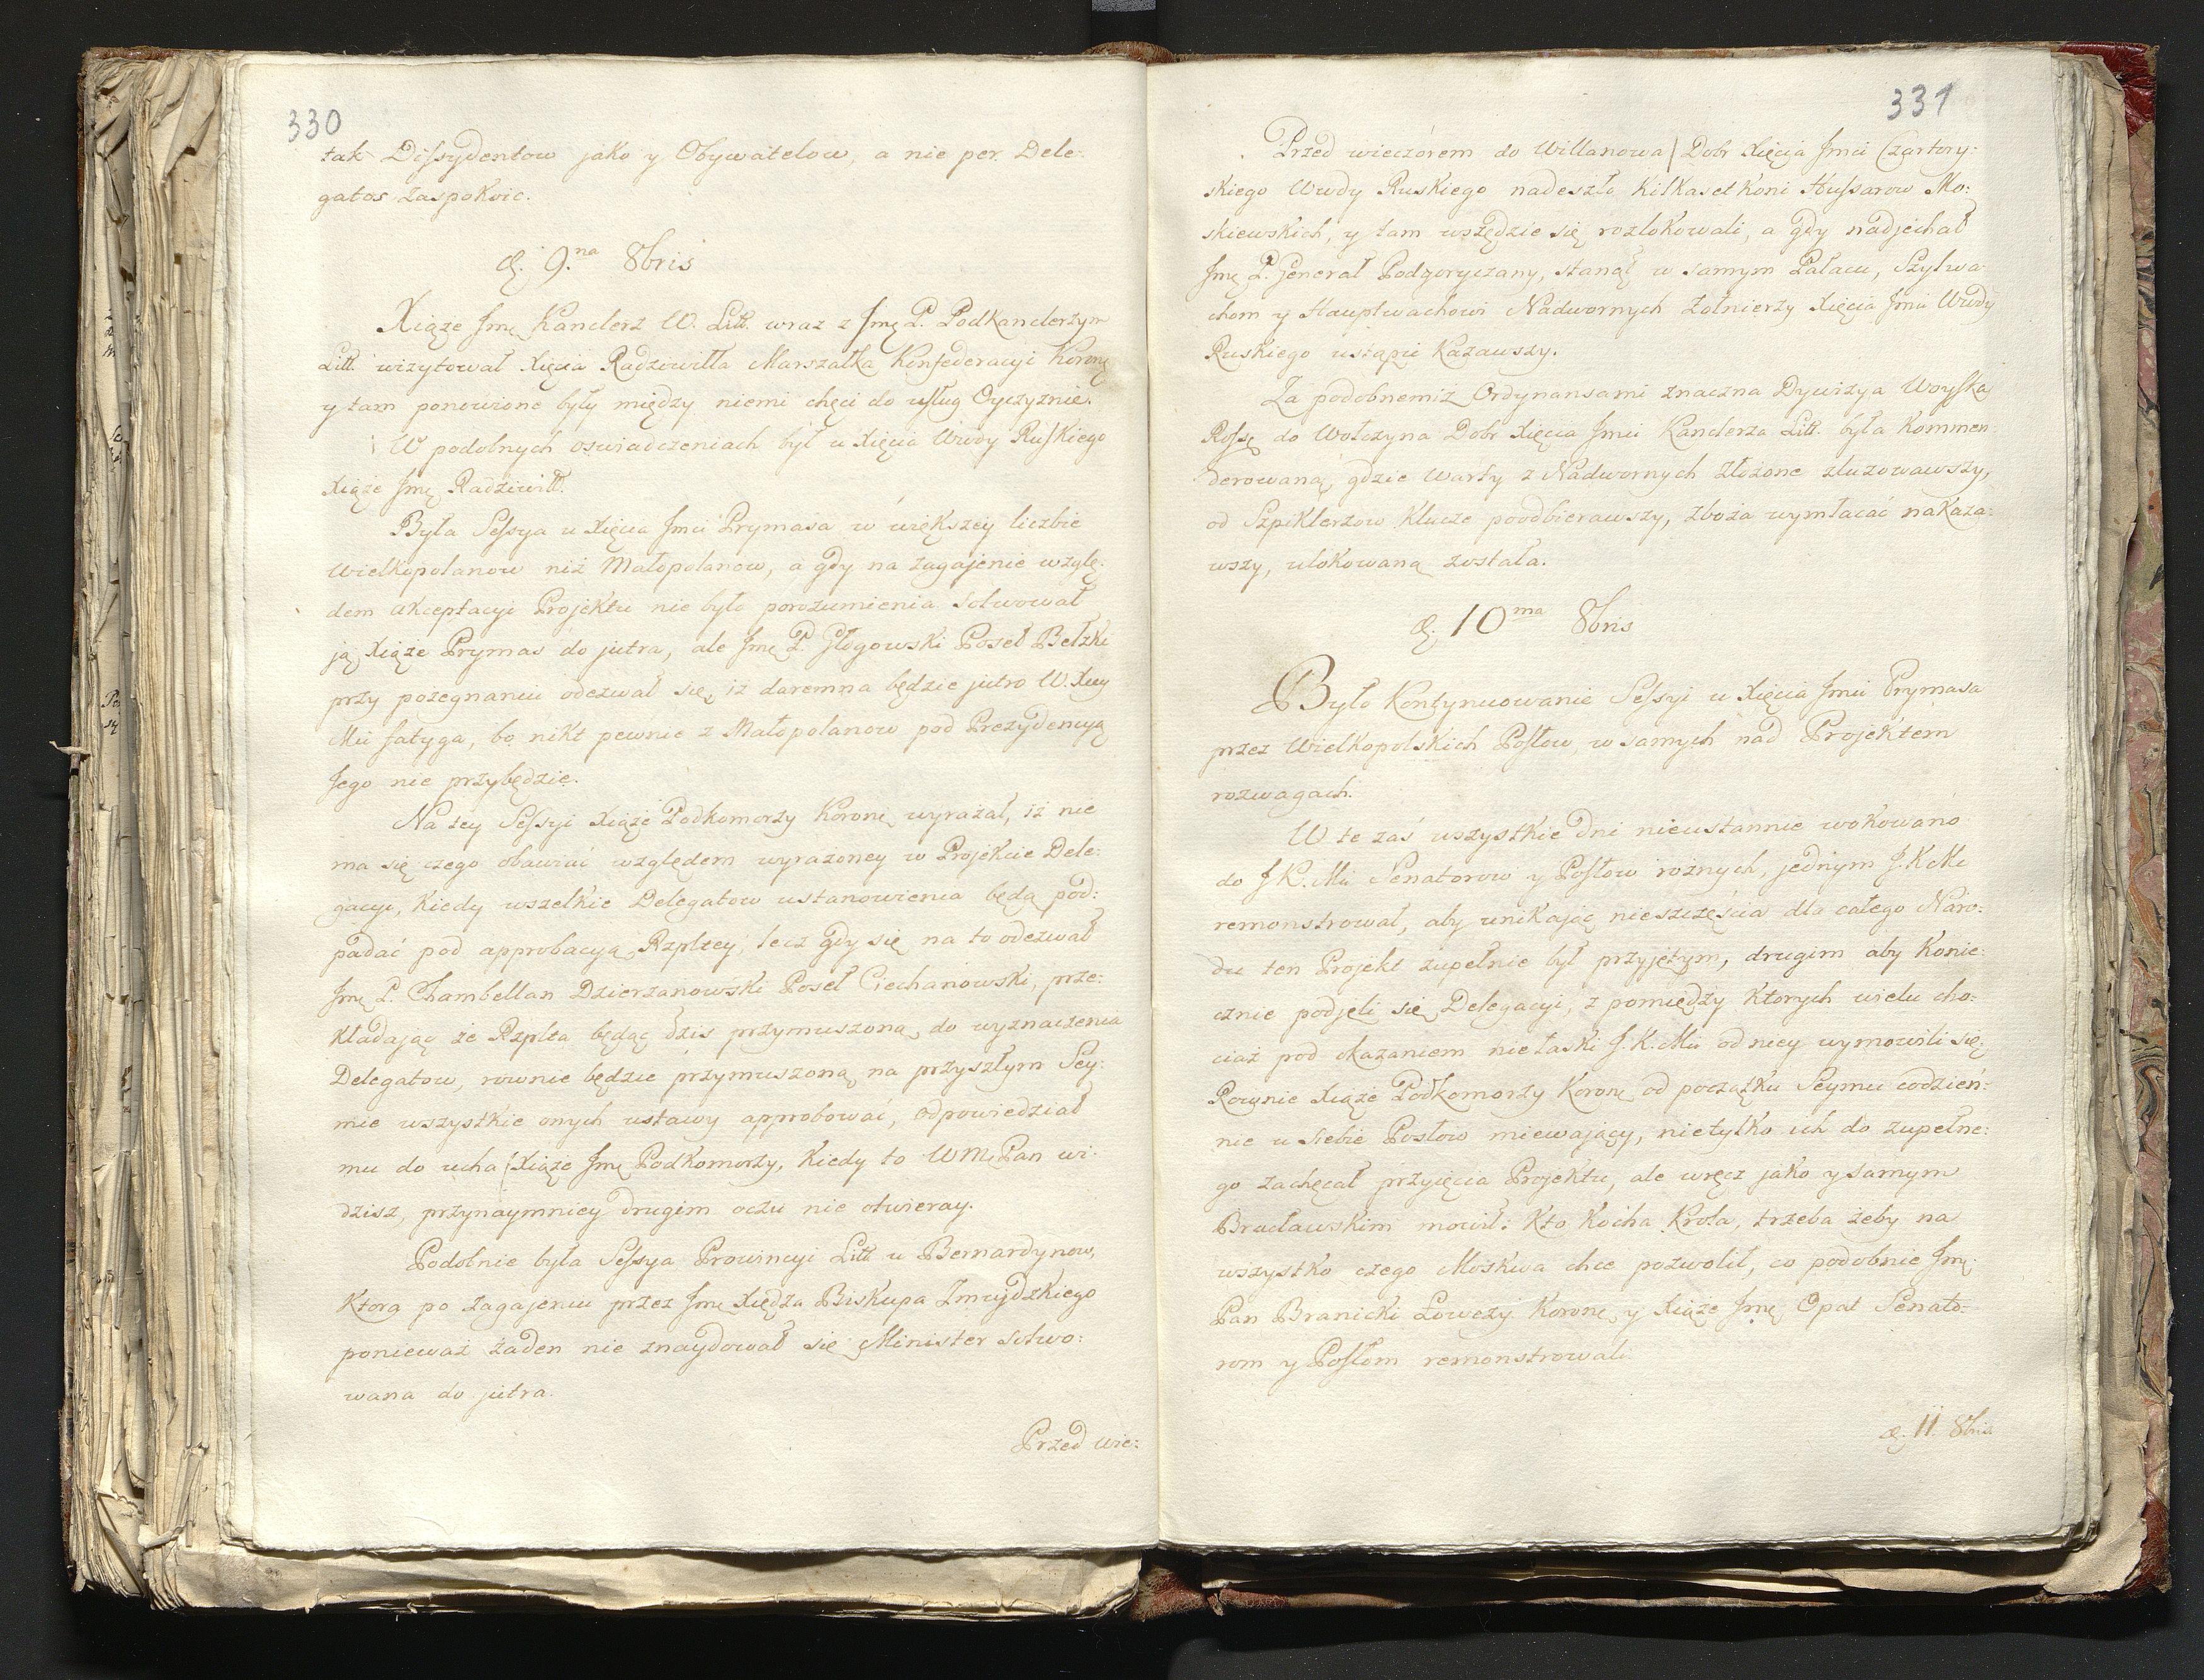 330
tak Dissydentow jako y Obywatelow, a nie per Dele:
gatos zaspokoic.
d. 9.na 8bris
Xiąże Jmę Kanclerz W. Litt. wraz z Jmę P. Podkanclerzym
Litt. wizytował Xięcia Radziwiłła Marszałka Konfederacyi Koronę
y tam ponowione były między niemi chęci do usług Oyczyznie.
W podobnych oswiadczeniach był u Xięcia Wwdy Ruskiego
Xiąże Jmę Radziwiłł.
Była Sessya u Xięcia Jmci Prymasa w większey liczbie
Wielkopolanow niż Małopolanow, a gdy na zagajenie wzglę:
dem akceptacyi Projektu nie było porozumienia solwował
ją Xiąże Prymas do jutra, ale Jmę P. Głogowski Poseł Bełzki
przy pożegnaniu odezwał się, iż daremna będzie jutro W. Xcey
Mci fatyga, bo nikt pewnie z Małopolanow pod Prezydencyą
Jego nie przybędzie.
Na tey Sessyi Xiąże Podkomorzy Koronę wyrażał, iż nie
ma się czego obawiać względem wyrażoney w Projekcie Dele:
gacyi, kiedy wszelkie Delegatow ustanowienia będą pod:
padać pod approbacyą Rzpltey, lecz gdy się na to odezwał
Jmę P. Chambellan Dzierzanowski Poseł Ciechanowski, prze:
kładając że Rzplta będąc dzis przymuszoną do wyznaczenia
Delegatow, rownie będzie przymuszoną na przyszłym Sey:
mie wszystkie onych ustawy approbować, odpowiedział
mu do ucha Xiąże Jmę Podkomorzy, kiedy to WMę Pan wi:
dzisz, przynaymniey drugim oczu nie otwieray.
Podobnie była Sessya Prowincyi Litt u Bernardynow,
ktora po zagajeniu przez Jmę Xiędza Biskupa Zmuydzkiego
ponieważ żaden nie znaydował się Minister solwo:
wana do jutra.
Przed wie:
331
Przed wieczórem do Willanowa / Dobr Xięcia Jmci Czartory:
skiego Wwdy Ruskiego nadeszło kilkaset koni Hussarow Mo:
skiewskich, y tam wszędzie się rozlokowali, a gdy nadjechał
Jmę P. Generał Podgoryczany, stanął w samym Pałacu, Szylwa
chom y Hauptwachowi Nadwornych Żołnierzy Xięcia Jmci Wwdy
Ruskiego ustąpic kazawszy.
Za podobnemiż Ordynansami znaczna Dywizya Woyska
Rossę do Wołczyna Dobr Xięcia Jmci Kanclerza Litt. była kommen
derowaną, gdzie Warty z Nadwornych złożone zluzowawszy,
od Szpiklerzow klucze poodbierawszy, zboża wymłacać nakaza:
wszy, ulokowaną została.
d. 10ma 8bris
Było kontynuowanie Sessyi u Xięcia Jmci Prymasa
przez Wielkopolskich Posłow, w samych nad Projektem
rozwagach.
W te zaś wszystkie dni nieustannie wokowano
do J K. Mci Senatorow y Posłow rożnych, jednym J. K Mc
remonstrował, aby unikając nieszczęścia dla całego Naro:
du ten Projekt zupełnie był przyjętym, drugim aby konie:
cznie podjęli się Delegacyi, z pomiędzy ktorych wielu cho:
ciaż pod okazaniem niełaski J. K. Mci od niey wymowili się,
Rownie Xiąże Podkomorzy Koronę od początku Seymu codzień:
nie u siebie Posłow miewający, nietylko ich do zupełne:
go zachęcał przyięcia Projektu, ale wręcz jako y samym
Bracławskim mowił: Kto kocha Krola, trzeba żeby na
wszystko czego Moskwa chce pozwolił, co podobnie Jmę
Pan Branicki Łowczy Koronę y Xiąże Jmę Opat Senato:
rom y Posłom remonstrowali
d. 11. 8bris